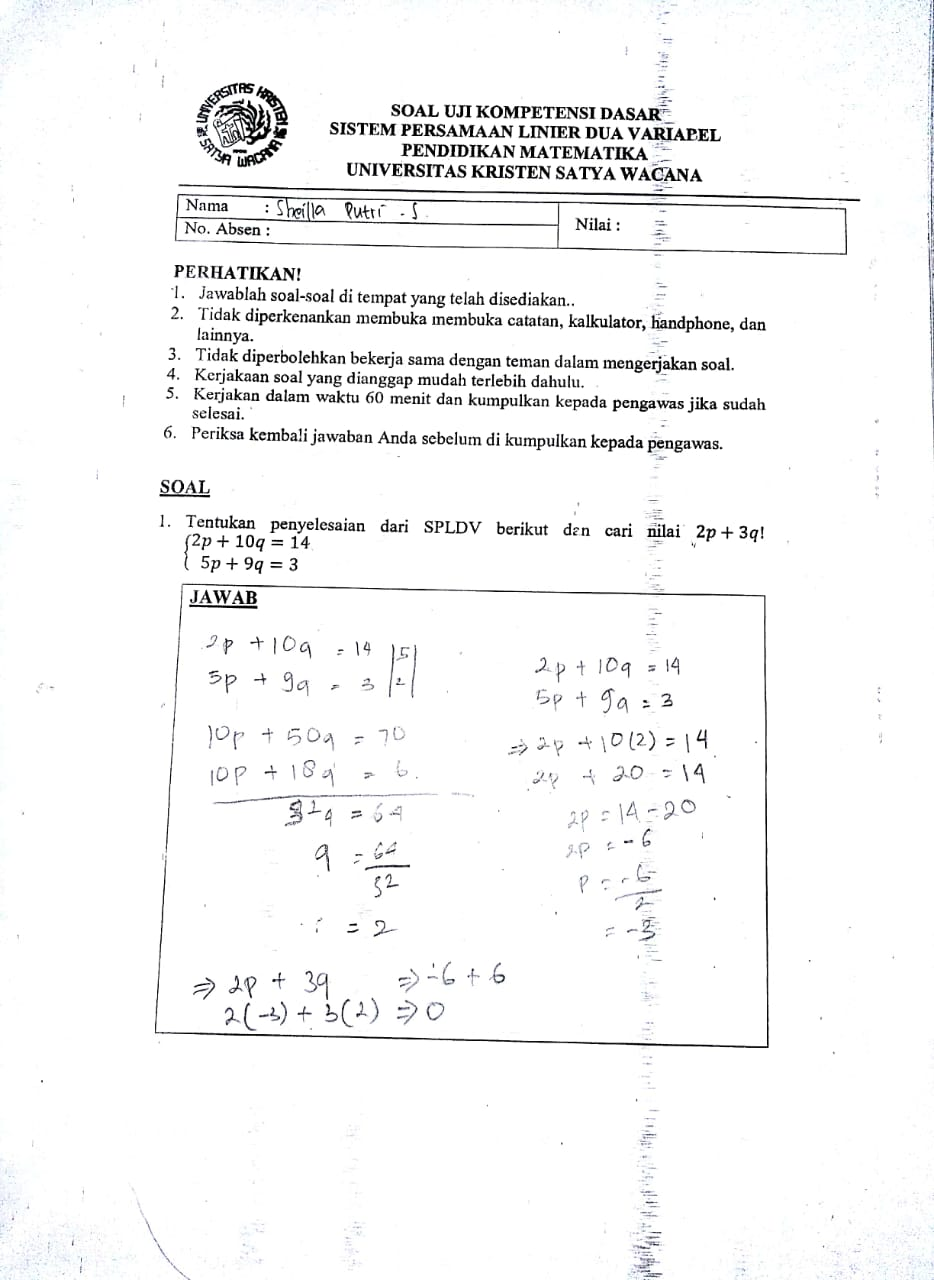 UNIVERSITAS KRISTEN
SATYA WACANA
SOAL UJI KOMPETENSI DASAR
SISTEM PERSAMAAN LINIER DUA VARIABEL
PENDIDIKAN MATEMATIKA
UNIVERSITAS KRISTEN SATYA WACANA
Nama : Sheilla Putri . S.
No. Absen :
Nilai :
PERHATIKAN!
1. Jawablah soal-soal di tempat yang telah disediakan..
2. Tidak diperkenankan membuka membuka catatan, kalkulator, handphone, dan
lainnya.
3. Tidak diperbolehkan bekerja sama dengan teman dalam mengerjakan soal.
4. Kerjakaan soal yang dianggap mudah terlebih dahulu.
5. Kerjakan dalam waktu 60 menit dan kumpulkan kepada pengawas jika sudah
selesai.
6. Periksa kembali jawaban Anda sebelum di kumpulkan kepada pengawas.
SOAL
1. Tentukan penyelesaian dari SPLDV berikut dan cari nilai 2p + 3q!
{2p + 10q = 14
5p + 9q = 3
JAWAB
2p + 10q = 14 |5|
5p + 9q = 3 |2|
10p + 50q = 70
10p + 18q = 6.
32q = 64
q = 64
32
= 2
2p + 10q = 14
5p + 9q = 3
⇒ 2p + 10(2) = 14
2p + 20 = 14
2p = 14 - 20
2p = -6
p = -6
2
= -3
⇒ 2p + 3q ⇒ -6 + 6
2(-3) + 3(2) ⇒ 0